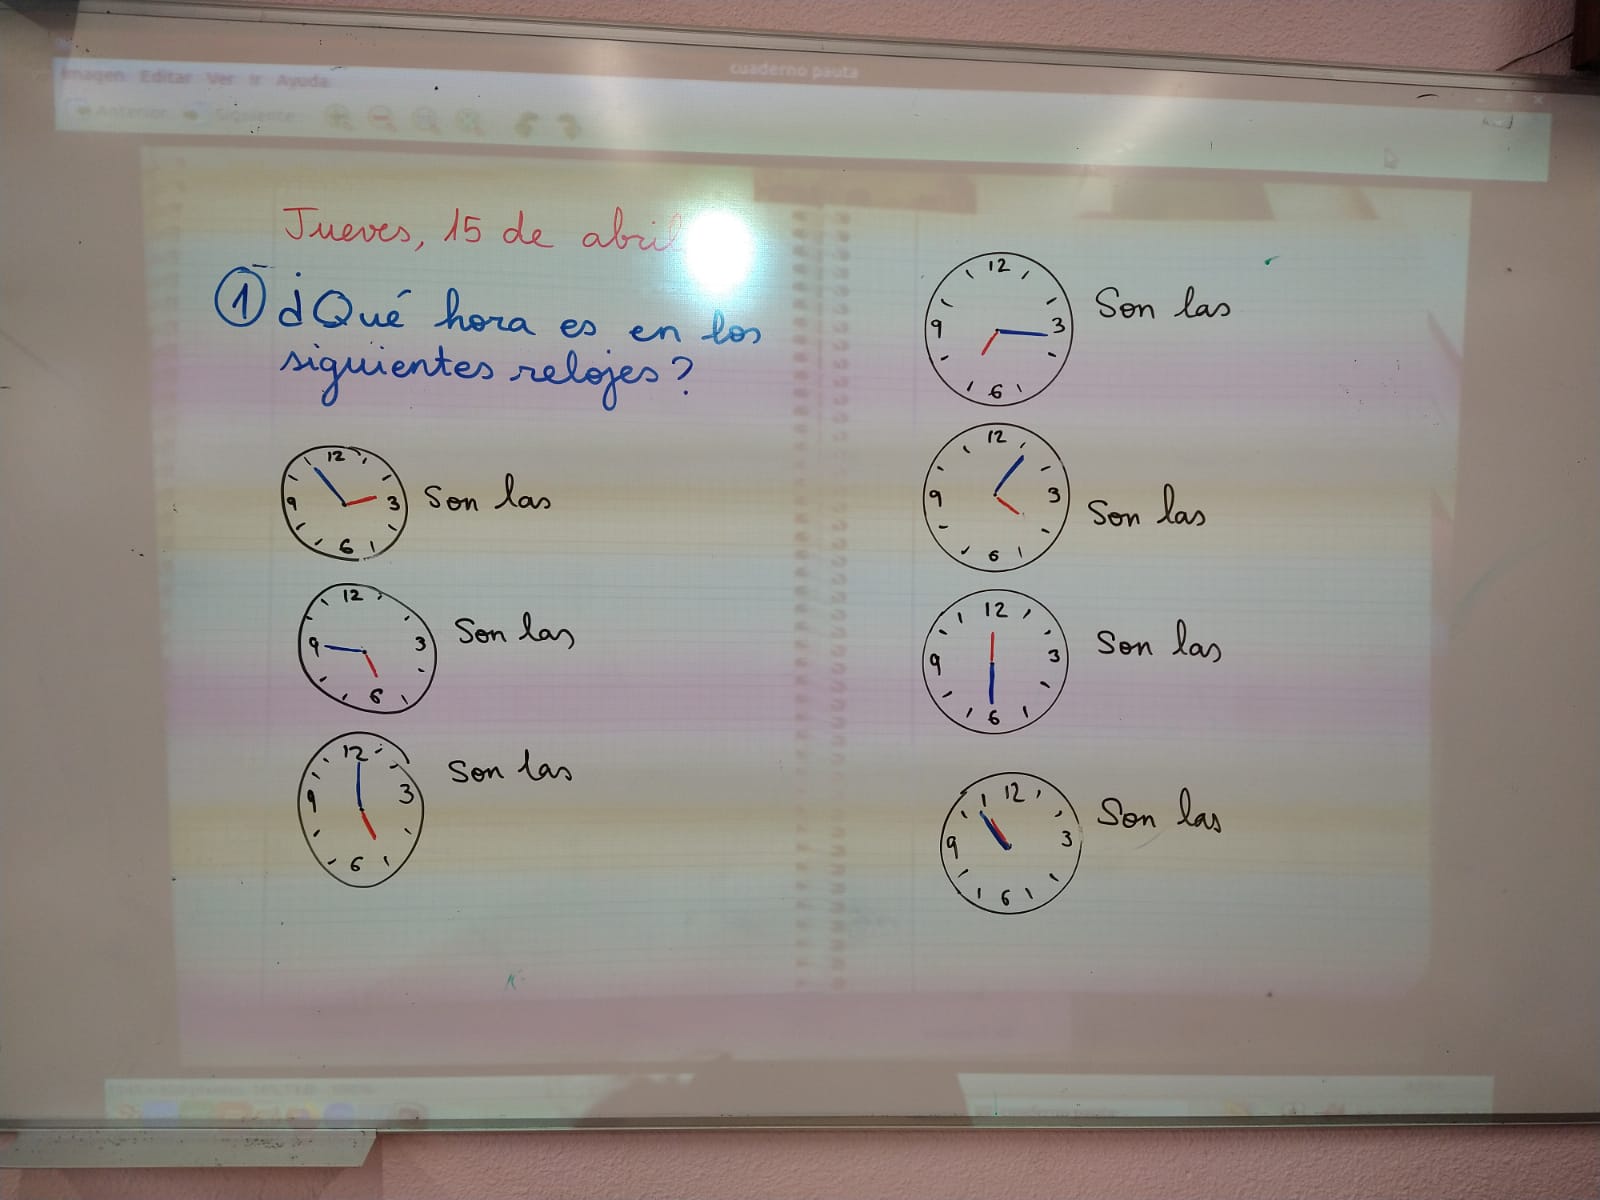 cuaderno pauta
Imagen Editar Ver Ir Ayuda
Anterior Siguiente
Jueves, 15 de abril
1 ¿Qué hora es en los
siguientes relojes?
12
3
6
9
Son las
12
3
6
9
Son las
12
3
6
9
Son las
12
3
6
9
Son las
12
3
6
9
Son las
12
3
6
9
Son las
12
3
6
9
Son las